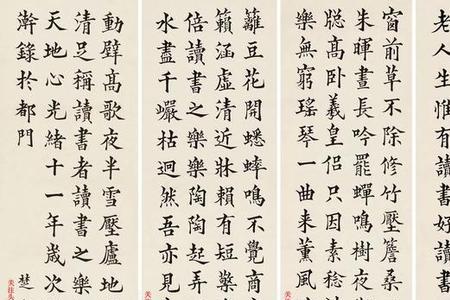 老人生惟有讀書好讀書
窗前草不除修竹壓簷桑
朱暉晝長吟罷蟬鳴樹夜
牕高卧羲皇侶只因素稔
樂無窮瑤琴一曲来薰風
籬豆花開蟋蟀鳴不覺商
籟涵虛清近牀賴有短檠
倍讀書之樂樂陶陶起弄
水盡千巖枯迥然吾亦見
動壁高歌夜半雪壓廬地
清足稱讀書者讀書之樂
天地心光緒十一年歲次
澣錄於都門 楚